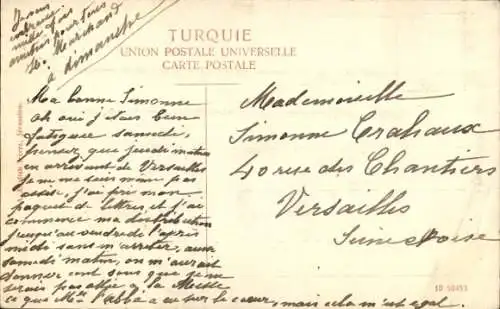 Je vous
embrasse
mille fois
amitiés pour tous
H. Marchand
à dimanche
TURQUIE
UNION POSTALE UNIVERSELLE
CARTE POSTALE
Ma bonne Simonne
Ah oui j'étais bien
fatiguée samedi,
pensez que jeudi matin
en arrivant de Versailles
je ne me suis même pas
assise, j'ai pris mon
paquet de lettres et j'ai
commencé ma distribution
jusqu'au vendredi l'après
midi sans m'arrêter, aussi
samedi matin, on m'aurait
donné cent sous que je ne
serais pas allée à la Messe
ce que Mr l'abbé a eu sur le cœur, mais cela m'est égal.
Mademoiselle
Simonne Crahaux
40 rue des Chantiers
Versailles
Seine & Oise
10 50453